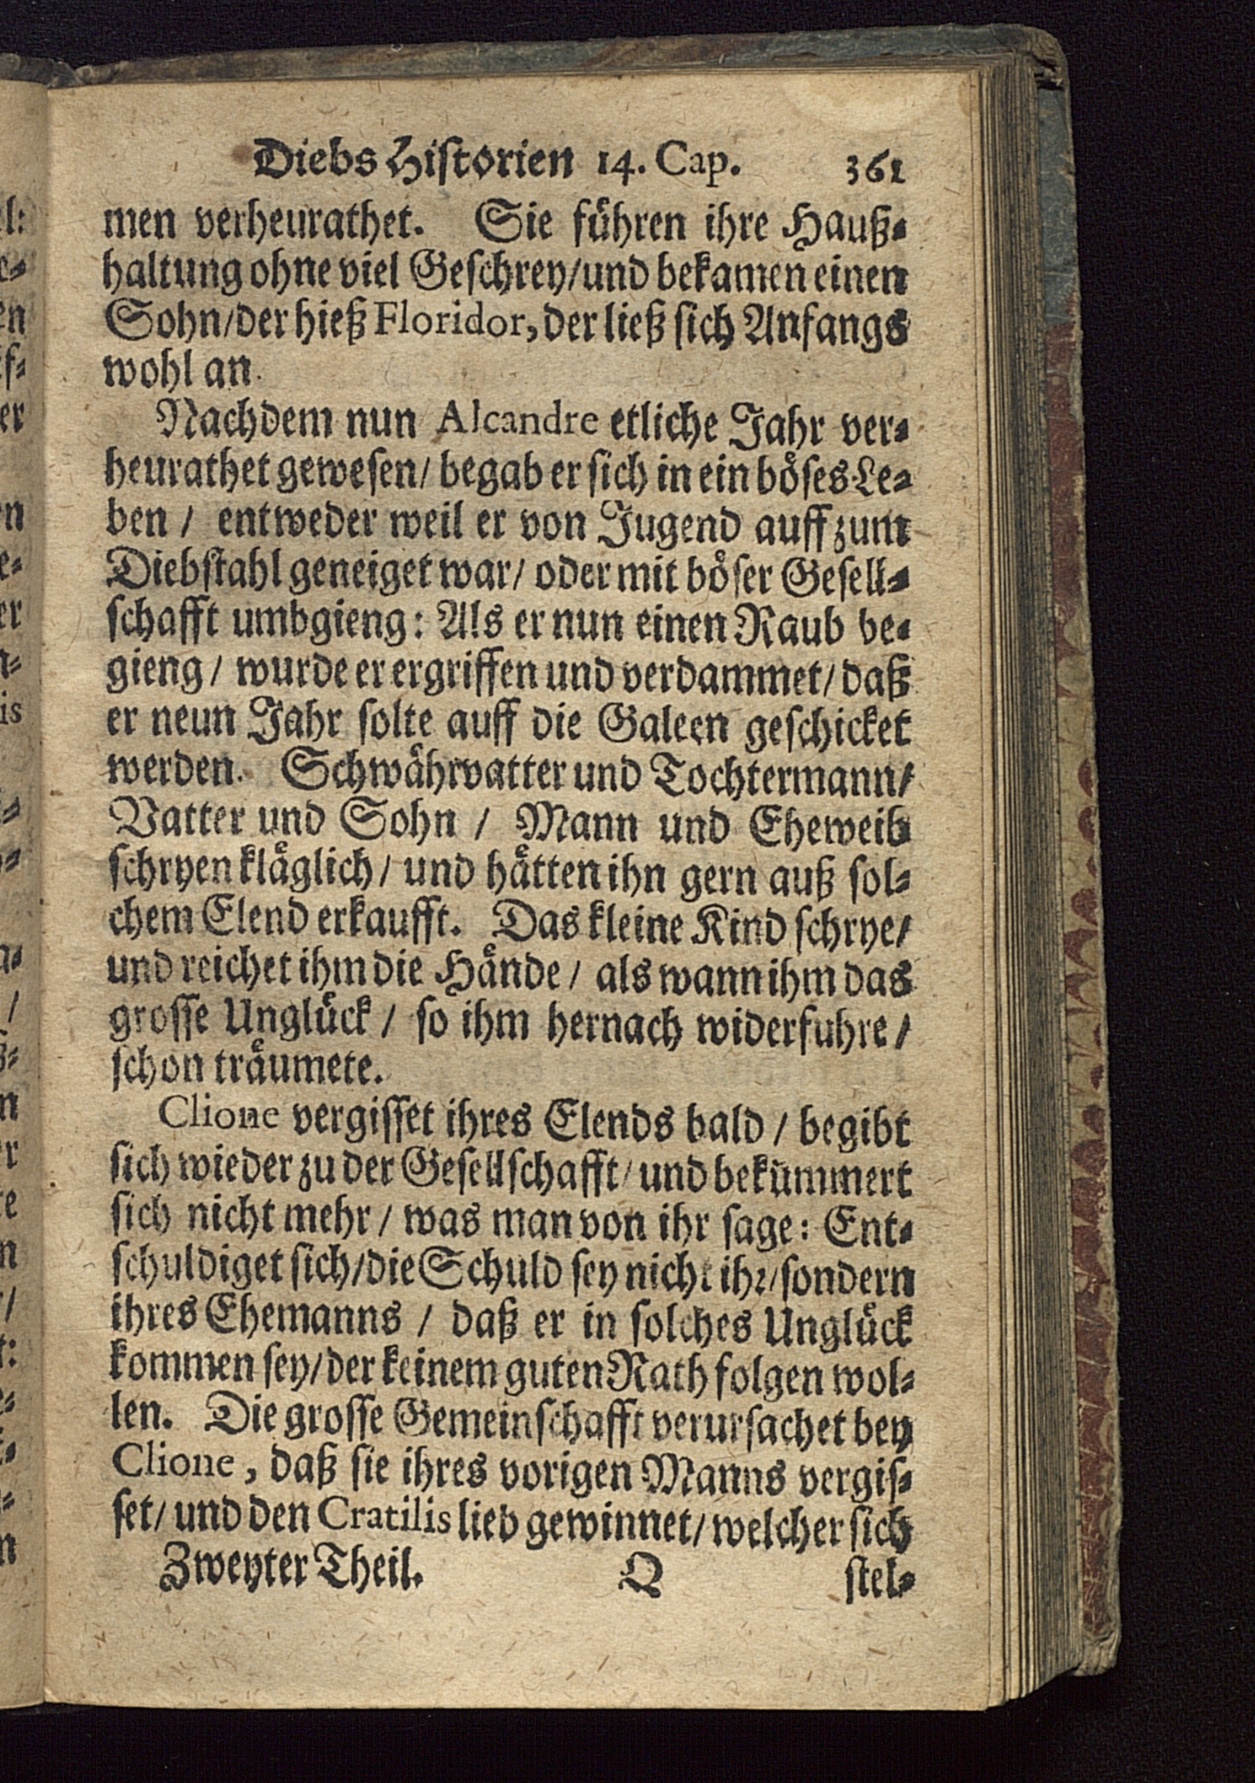 Diebs Historien 14. Cap. 361
men verheurathet. Sie führen ihre Hauß-
haltung ohne viel Geschrey/und bekamen einen
Sohn/der hieß Floridor, der ließ sich Anfangs
wohl an.
Nachdem nun Alcandre etliche Jahr ver-
heurathet gewesen/ begab er sich in ein böses Le-
ben / entweder weil er von Jugend auff zum
Diebstahl geneiget war/ oder mit böser Gesell-
schafft umbgieng: Als er nun einen Raub be-
gieng / wurde er ergriffen und verdammet/ daß
er neun Jahr solte auff die Galeen geschicket
werden. Schwährvatter und Tochtermann/
Vatter und Sohn / Mann und Eheweib
schryen kläglich / und hätten ihn gern auß sol-
chem Elend erkaufft. Das kleine Kind schrye/
und reichet ihm die Hände / als wann ihm das
grosse Unglück / so ihm hernach widerfuhre /
schon träumete.
Clione vergisset ihres Elends bald / begibt
sich wieder zu der Gesellschafft/ und bekümmert
sich nicht mehr / was man von ihr sage: Ent-
schuldiget sich/die Schuld sey nicht ihr/sondern
ihres Ehemanns / daß er in solches Unglück
kommen sey/der keinem guten Rath folgen wol-
len. Die grosse Gemeinschafft verursachet bey
Clione, daß sie ihres vorigen Manns vergis-
set/ und den Cratilis lieb gewinnet/ welcher sich
Zweyter Theil. Q stel-